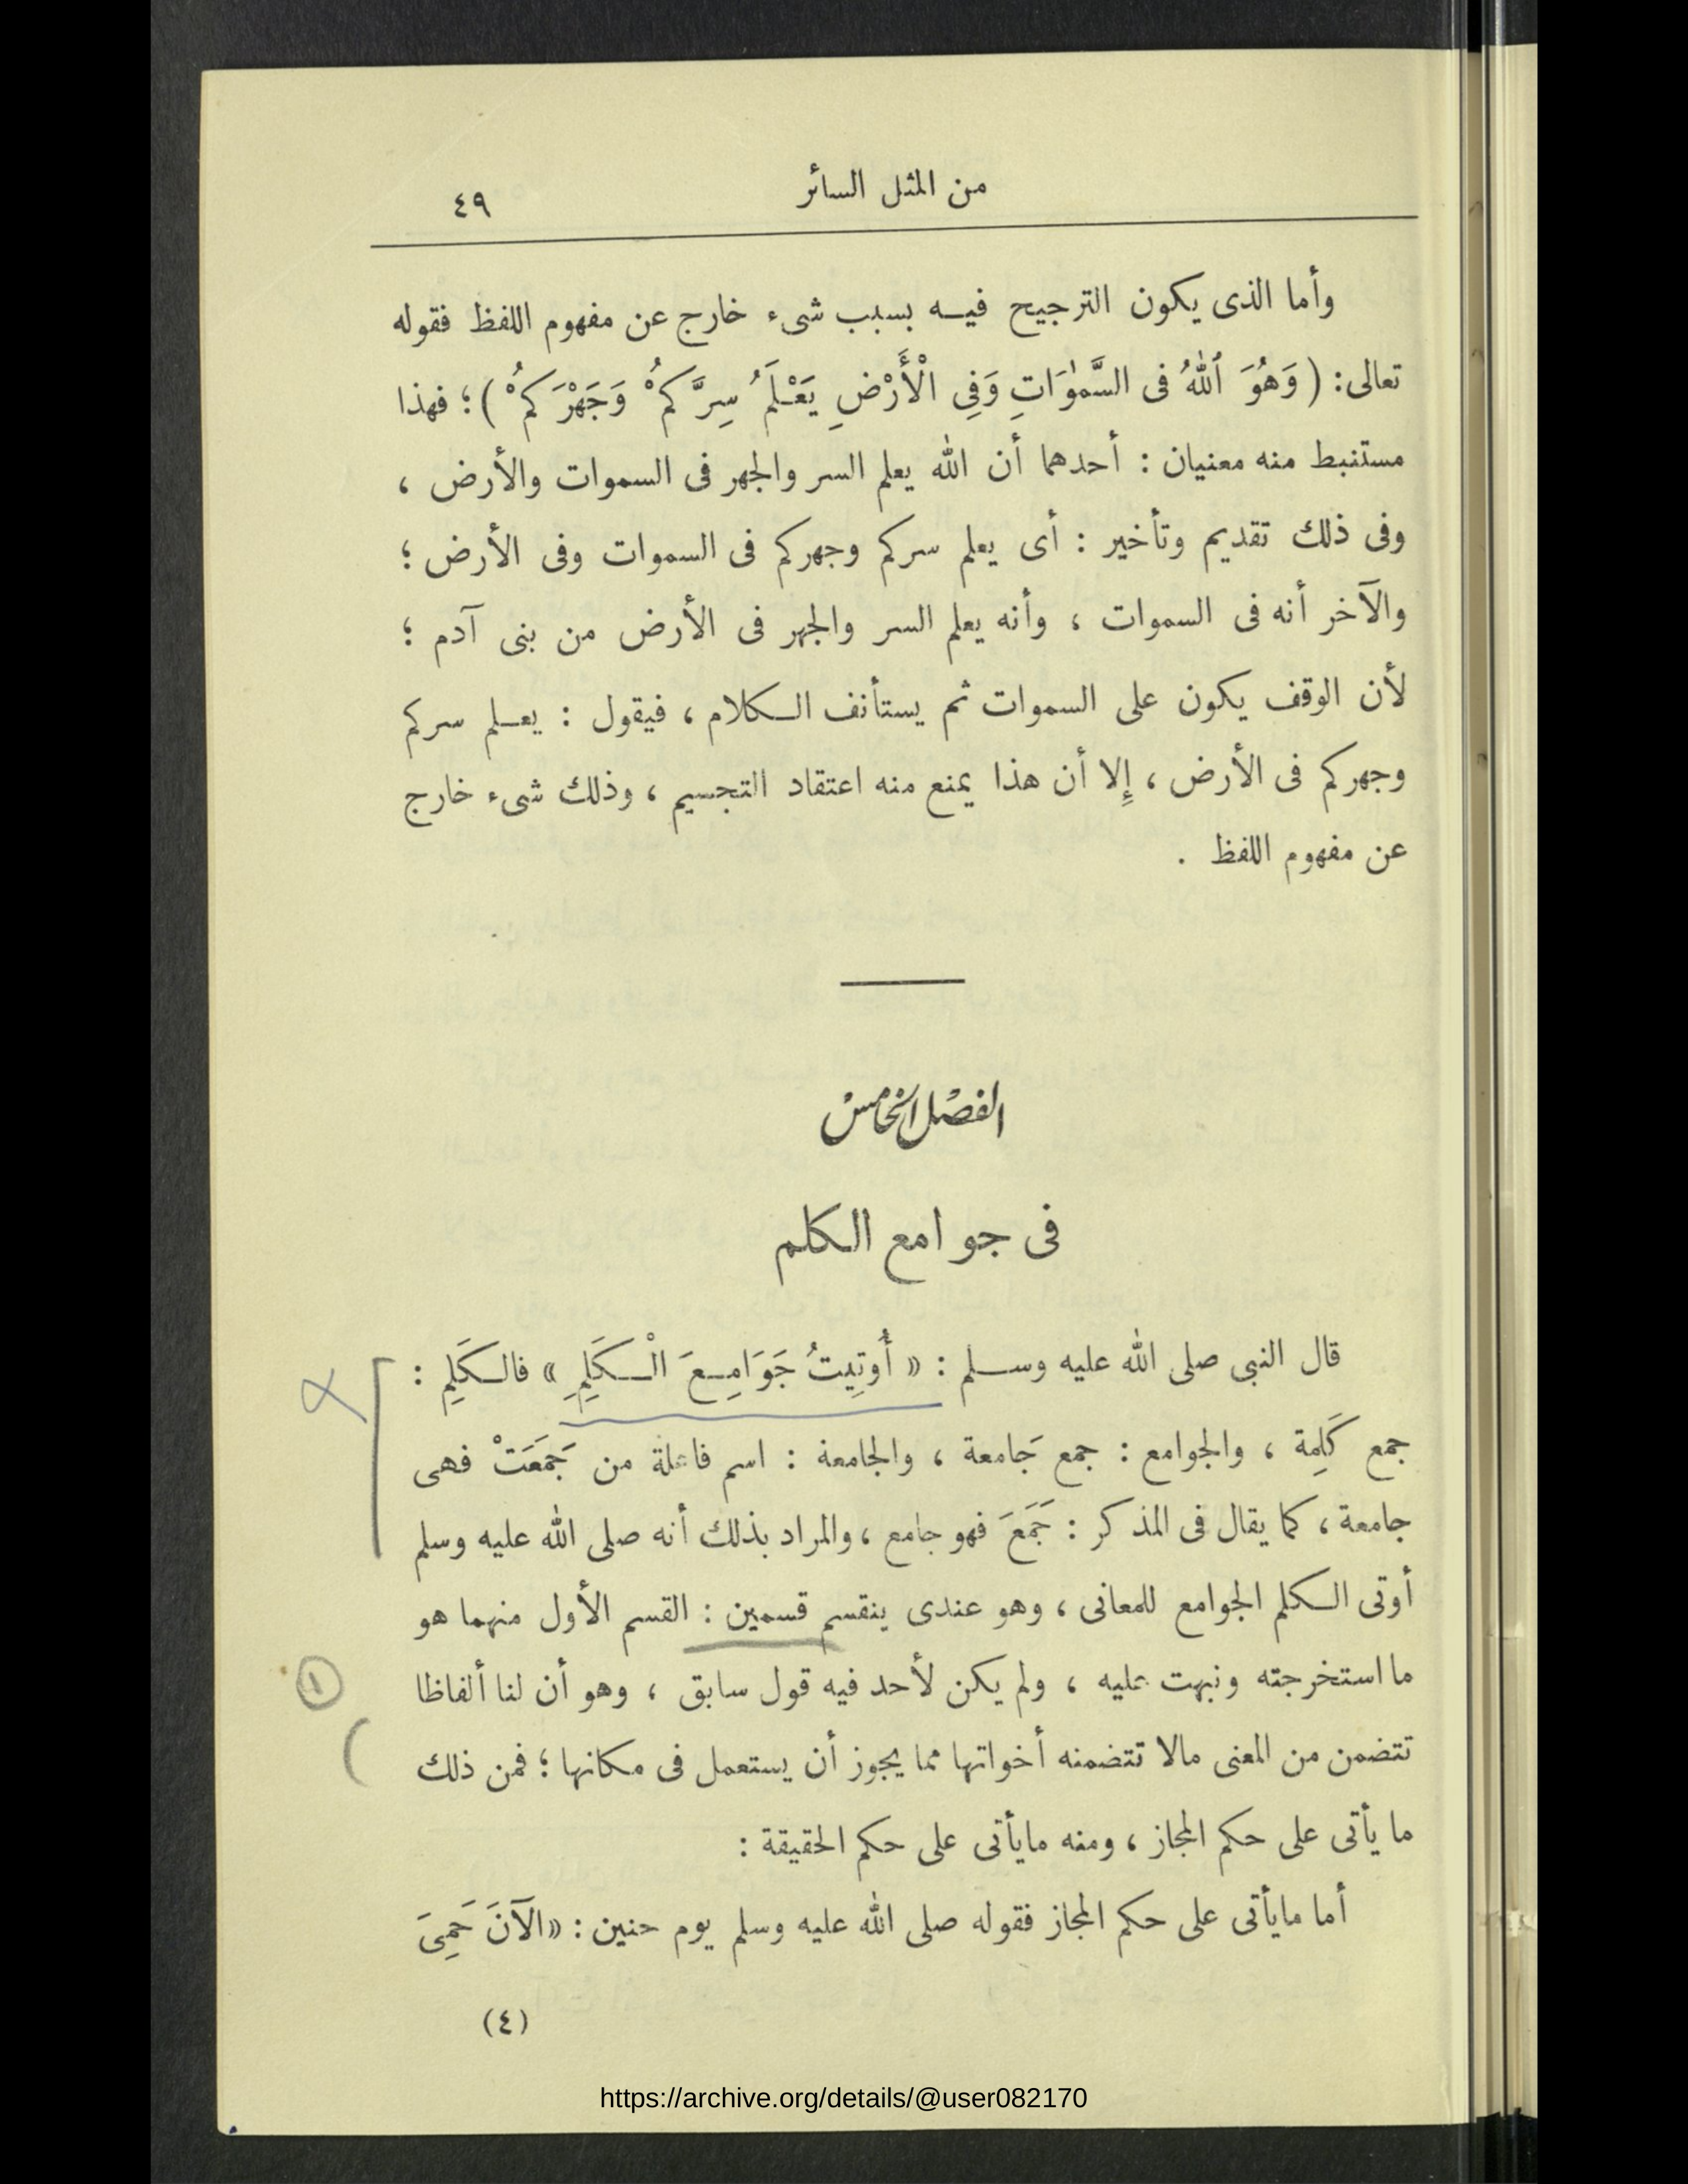 من المثل السائر
٤٩
وأما الذى يكون الترجيح فيه بسبب شىء خارج عن مفهوم اللفظ فقوله
تعالى: ( وَهُوَ ٱللهُ فى السَّمٰوَاتِ وَفِى الْأَرْضِ يَعْلَمُ سِرَّكمُْ وَجَهْرَكمُْ ) ؛ فهذا
مستنبط منه معنيان : أحدهما أن الله يعلم السر والجهر فى السموات والأرض ،
وفى ذلك تقديم وتأخير : أى يعلم سركم وجهركم فى السموات وفى الأرض ؛
والآخر أنه فى السموات ، وأنه يعلم السر والجهر فى الأرض من بنى آدم ؛
لأن الوقف يكون على السموات ثم يستأنف الكلام ، فيقول : يعلم سركم
وجهركم فى الأرض ، إِلا أن هذا يمنع منه اعتقاد التجسيم ، وذلك شىء خارج
عن مفهوم اللفظ .
الفصْل الخامسْ
فى جوامع الكلم
قال النبى صلى الله عليه وسلم : « أُوتِيتُ جَوَامِعَ الْكَلِمِ » فالكَلِمِ :
جمع كَلِمة ، والجوامع : جمع جَامعة ، والجامعة : اسم فاعلة من جَمَعَتْ فهى
جامعة ، كما يقال فى المذكر : جَمَعَ فهو جامع ، والمراد بذلك أنه صلى الله عليه وسلم
أوتى الكلم الجوامع للمعانى ، وهو عندى ينقسم قسمين : القسم الأول منهما هو
ما استخرجته ونبهت عليه ، ولم يكن لأحد فيه قول سابق ، وهو أن لنا ألفاظا
١
تتضمن من المعنى مالا تتضمنه أخواتها مما يجوز أن يستعمل فى مكانها ؛ فمن ذلك
ما يأتى على حكم المجاز ، ومنه مايأتى على حكم الحقيقة :
أما مايأتى على حكم المجاز فقوله صلى الله عليه وسلم يوم حنين : « الآنَ حَمِىَ
(٤)
https://archive.org/details/@user082170